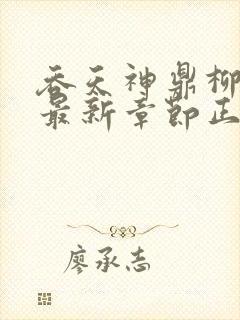 吞天神鼎柳
最新章节正
廖承志